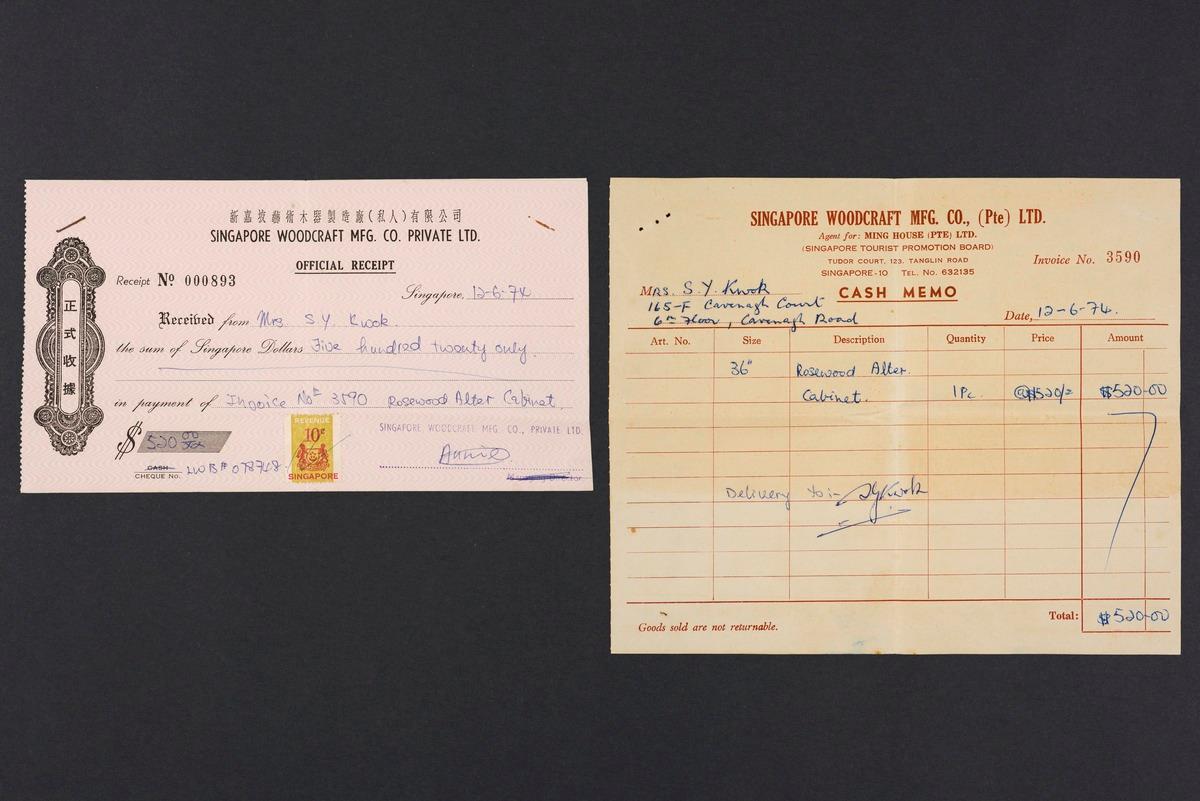 新嘉坡藝術木器製造廠(私人)有限公司
SINGAPORE WOODCRAFT MFG. CO. PRIVATE LTD.
OFFICIAL RECEIPT
正式收據
Receipt No 000893
Singapore, 12-6-74
Received from Mrs. S.Y. Kwok.
the sum of Singapore Dollars Five hundred twenty only.
in payment of Invoice No 3590 Rosewood Alter Cabinet.
$ 520 00
CASH
CHEQUE No.
REVENUE
10c
SINGAPORE
SINGAPORE WOODCRAFT MFG. CO., PRIVATE LTD.
Annie
SINGAPORE WOODCRAFT MFG. CO., (Pte) LTD.
Agent for: MING HOUSE (PTE) LTD.
(SINGAPORE TOURIST PROMOTION BOARD)
TUDOR COURT, 123, TANGLIN ROAD
SINGAPORE-10 TEL. No. 632135
Invoice No. 3590
MRS. S.Y. Kwok
165-F Cavenagh Court
6th Floor, Cavenagh Road
CASH MEMO
Date, 12-6-74.
Art. No. Size Description Quantity Price Amount
36" Rosewood Alter
Cabinet. 1 Pc. @$520/= $520-00
Delivery to:- SYKwok
Total: $520-00
Goods sold are not returnable.